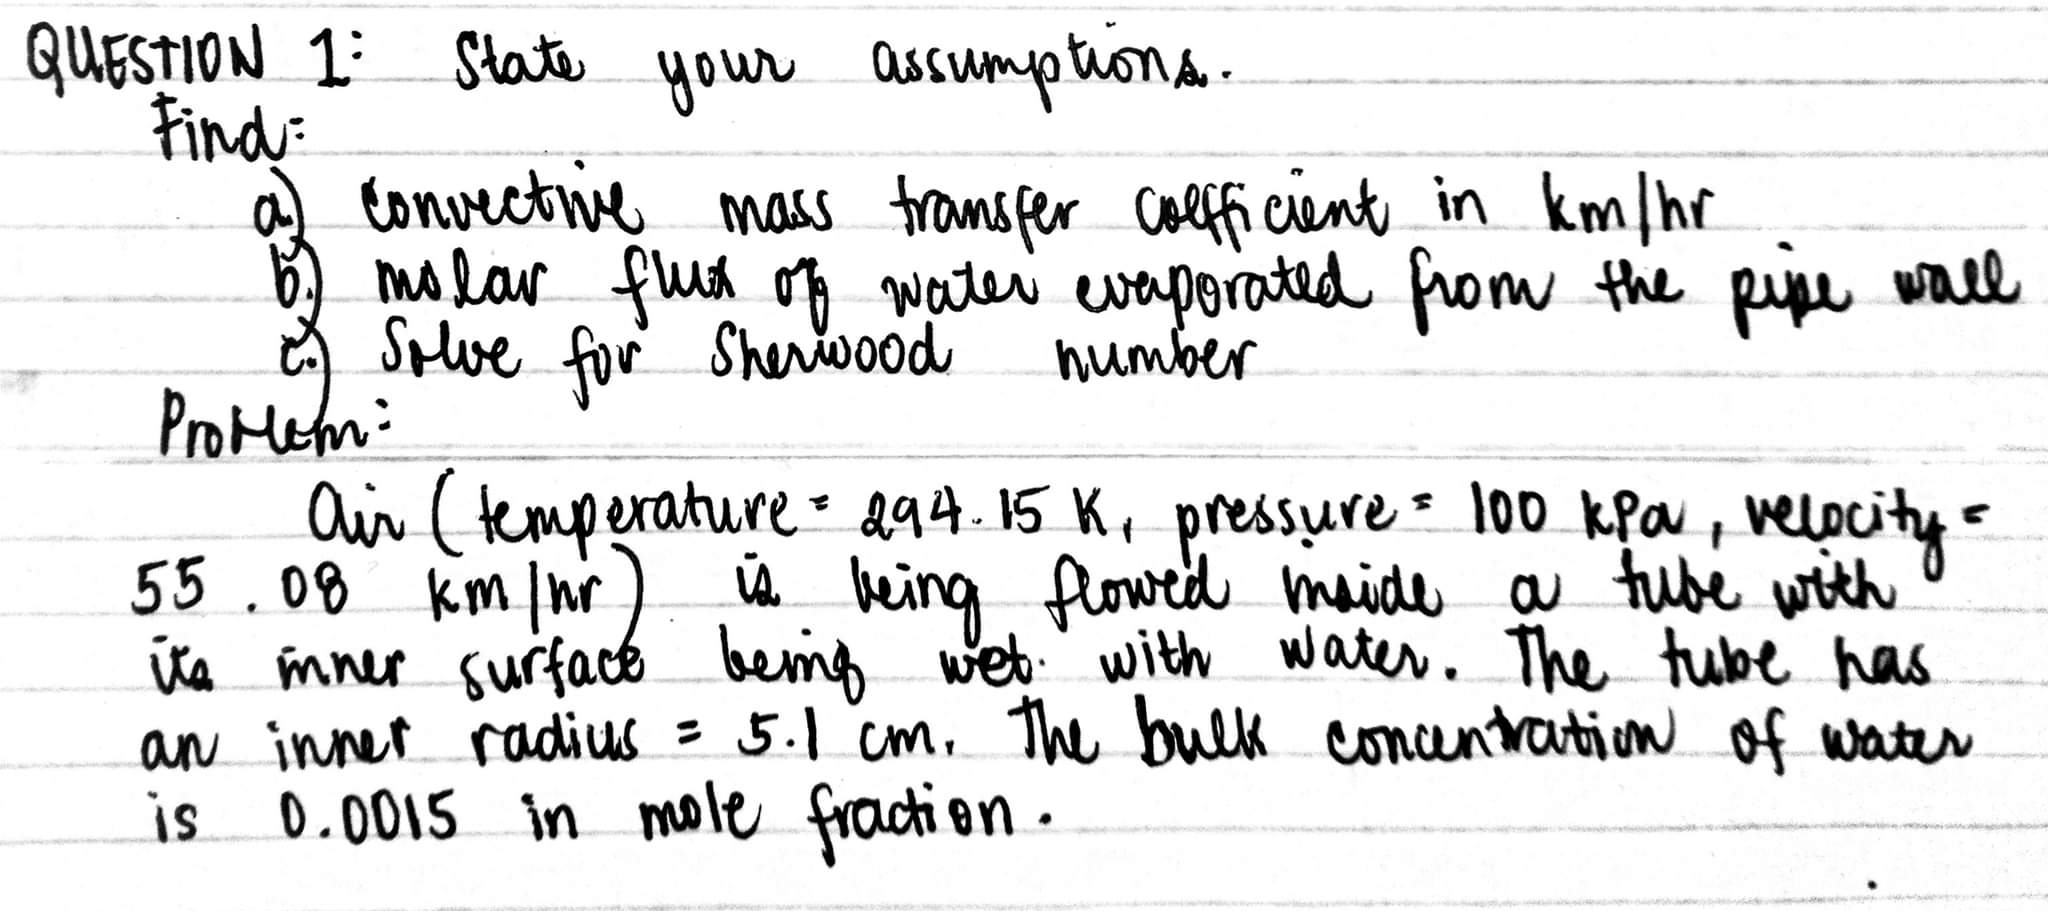 QUESTION 1: State your assumptions.
Find:
a.) convective mass transfer coefficient in km/hr
b.) molar flux of water evaporated from the pipe wall
c.) Solve for Sherwood number
Problem:
Air (temperature = 294.15 K, pressure = 100 kPa, velocity =
55.08 km/hr) is being flowed inside a tube with
its inner surface being wet with water. The tube has
an inner radius = 5.1 cm. The bulk concentration of water
is 0.0015 in mole fraction.